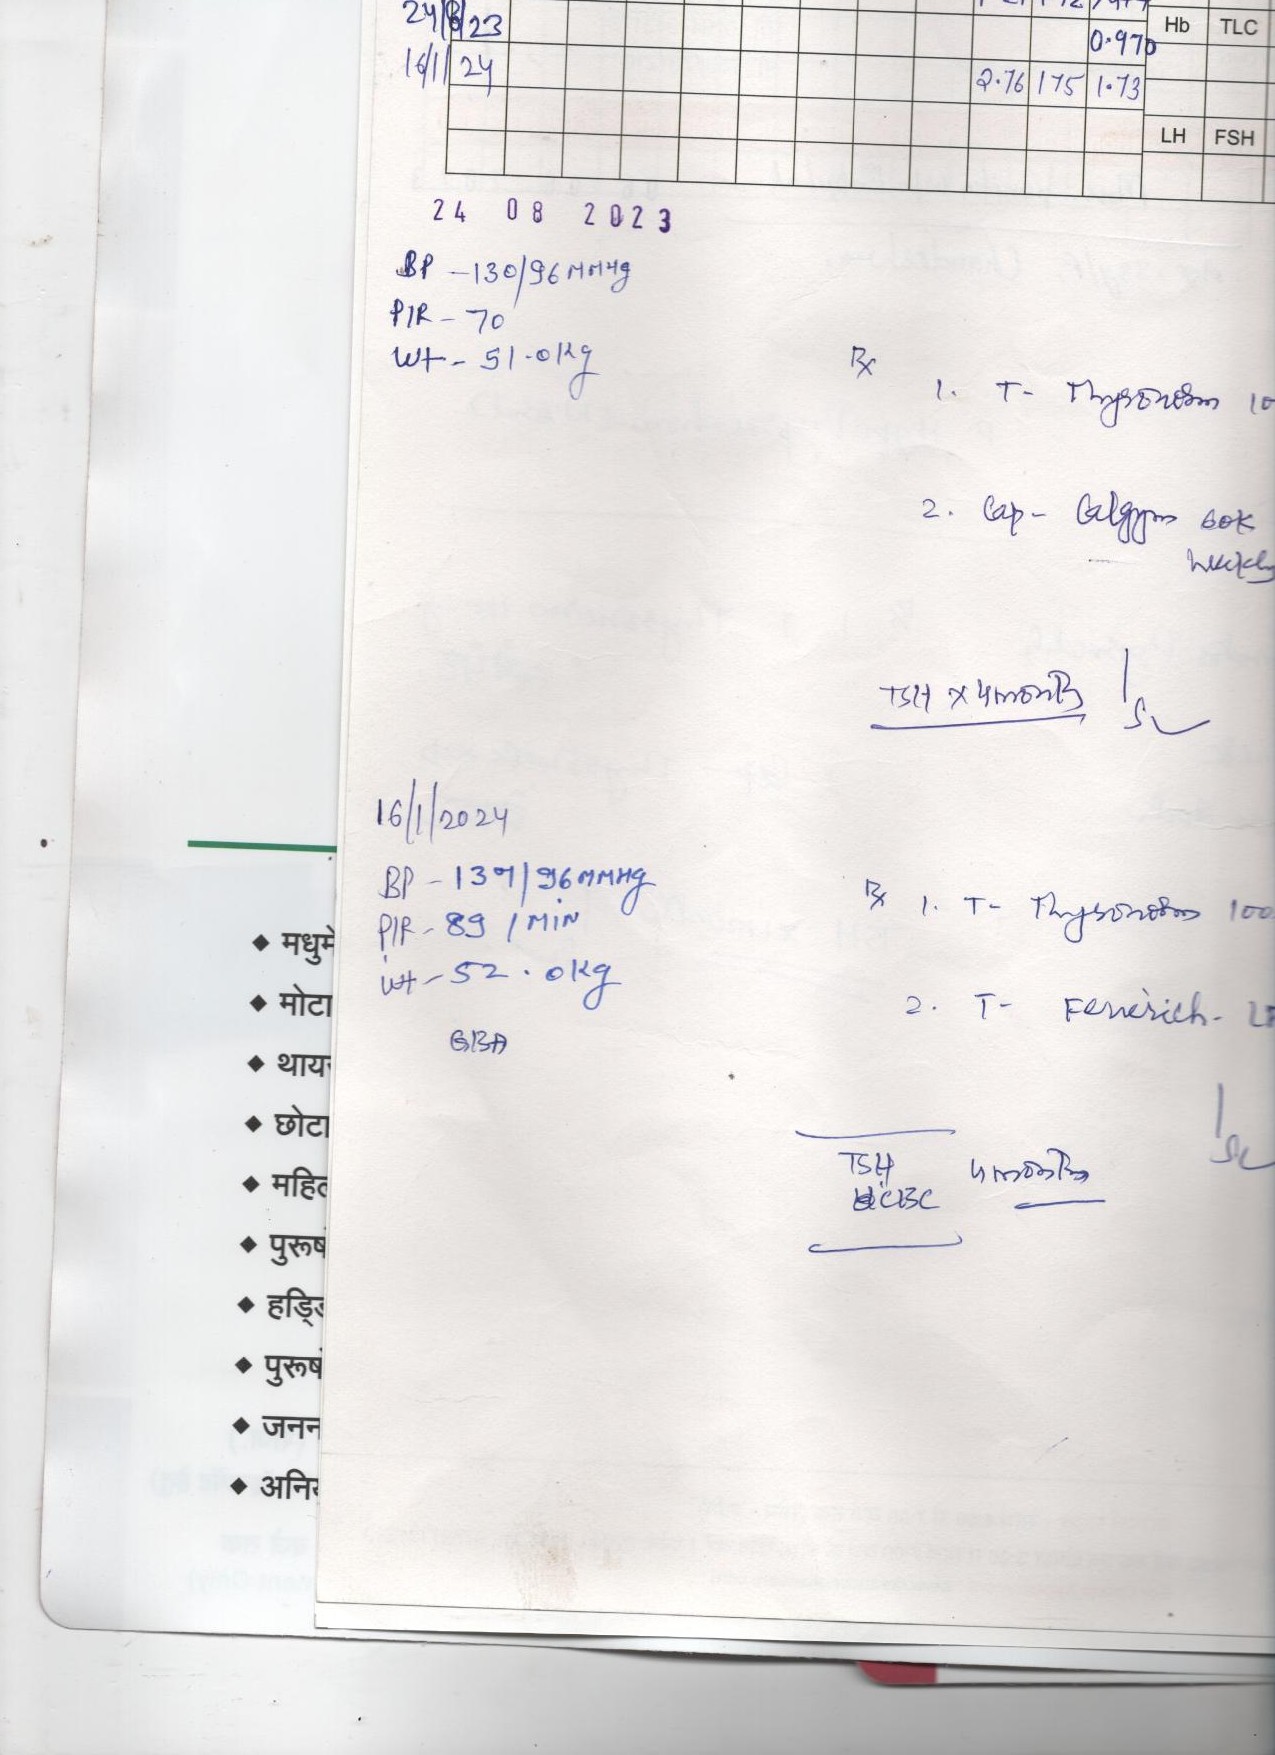 24/8/23
0.970
Hb TLC
16/1/24 2.76 175 1.73
LH FSH
24 08 2023
BP - 130/96 MMHg
P/R - 70
Wt - 51.0 Kg
Rx
1. T- Thyronorm 10
2. Cap- 60K
weekly
TSH x 4 months
16/1/2024
BP - 137/96 MMHg
P/R - 89 / MIN
Wt - 52.0 Kg
GBA
Rx 1. T- Thyronorm 100
2. T- Ferrerich-
TSH 4 months
CBC
◆ मधुमे
◆ मोटा
◆ थाय
◆ छोटा
◆ महि
◆ पुरूष
◆ हड्डि
◆ पुरूष
◆ जनन
◆ अनि